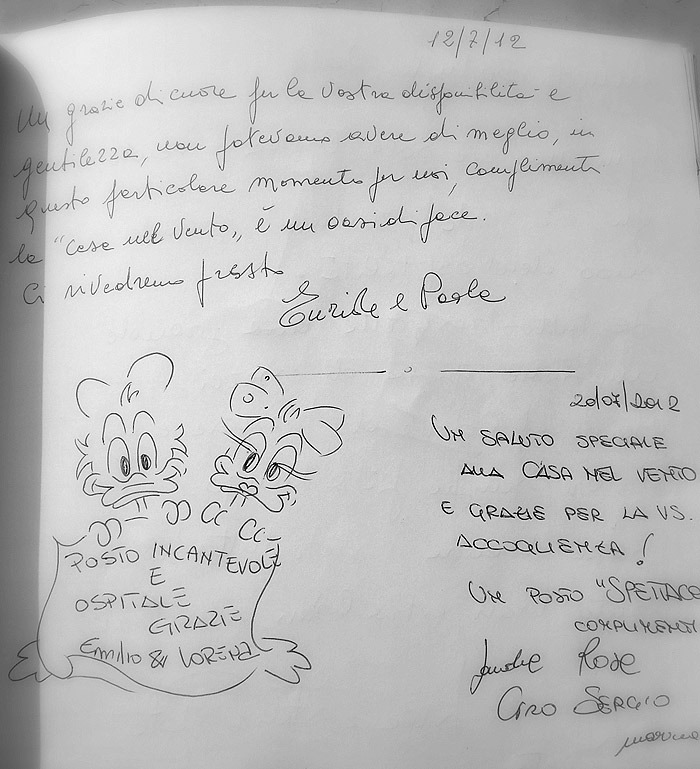 12/7/12
Un grazie di cuore per la vostra disponibilità e
gentilezza, non potevamo avere di meglio, in
questo particolare momento per noi, complimenti
la "Casa nel Vento", è un oasi di pace.
Ci rivedremo presto
e Paola
20/07/2012
UN SALUTO SPECIALE
ALLA CASA NEL VENTO
E GRAZIE PER LA VS.
ACCOGLIENZA!
UN POSTO "SPETTACO
COMPLIMENTI
Rose
CIRO SERGIO
POSTO INCANTEVOLE
E
OSPITALE
GRAZIE
Emilio & LORENA